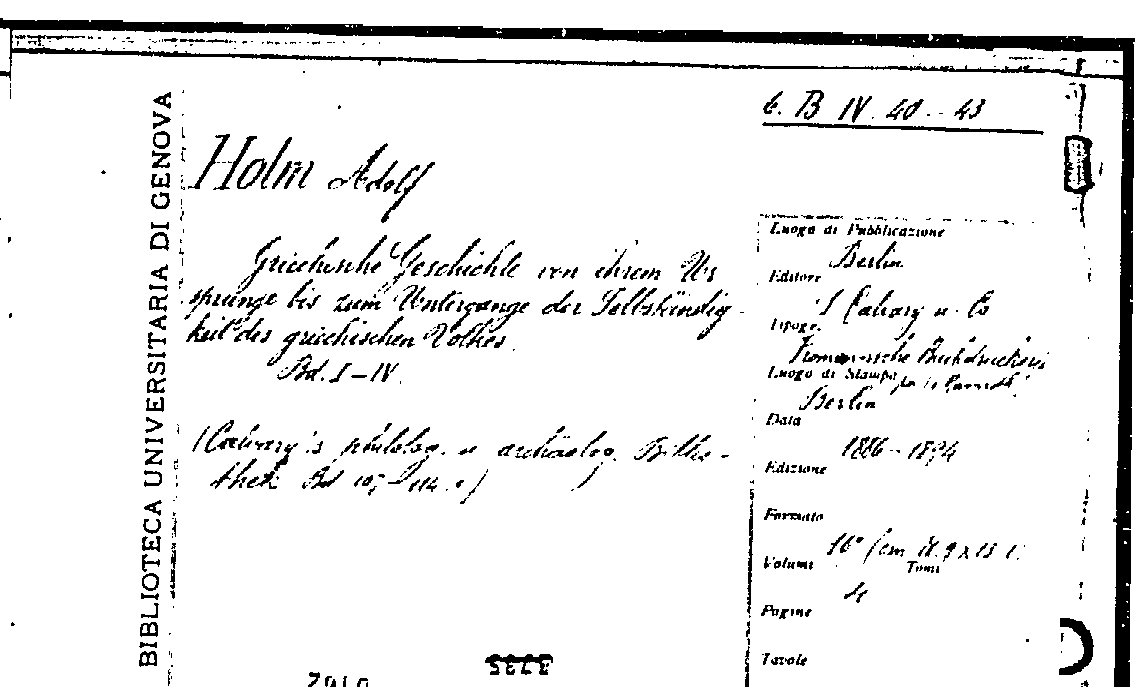 6. B IV. 40 - 43
BIBLIOTECA UNIVERSITARIA DI GENOVA
Holm Adolf
Griechische Geschichte von ihrem Ur
sprunge bis zum Untergange der Selbständig-
keit des griechischen Volkes.
Bd. I-IV.
(Calvary's philolog. u archäolog. Biblio-
thek Bd
Luogo di Pubblicazione
Berlin
Editore
S Calvary u. Co
Tipogr.
Buchdruckerei
Luogo di Stampa
Berlin
Data
1886-1894
Edizione
Formato
16° (cm
Volumi 4 Tomi
Pagine
Tavole